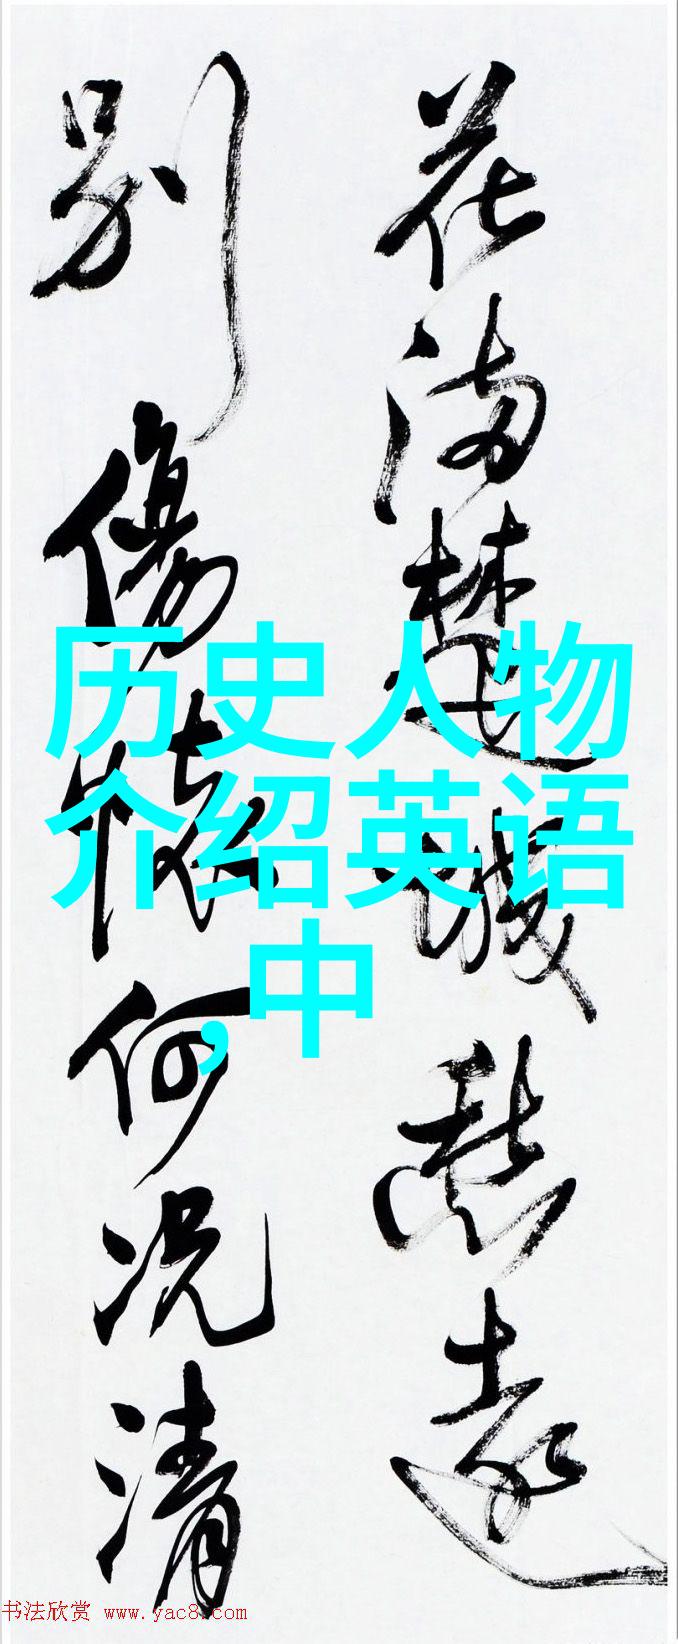 花满楚城愁远
别傷怀何况清
历史人物
介绍英语
,中
书法欣赏 www.yac8.com